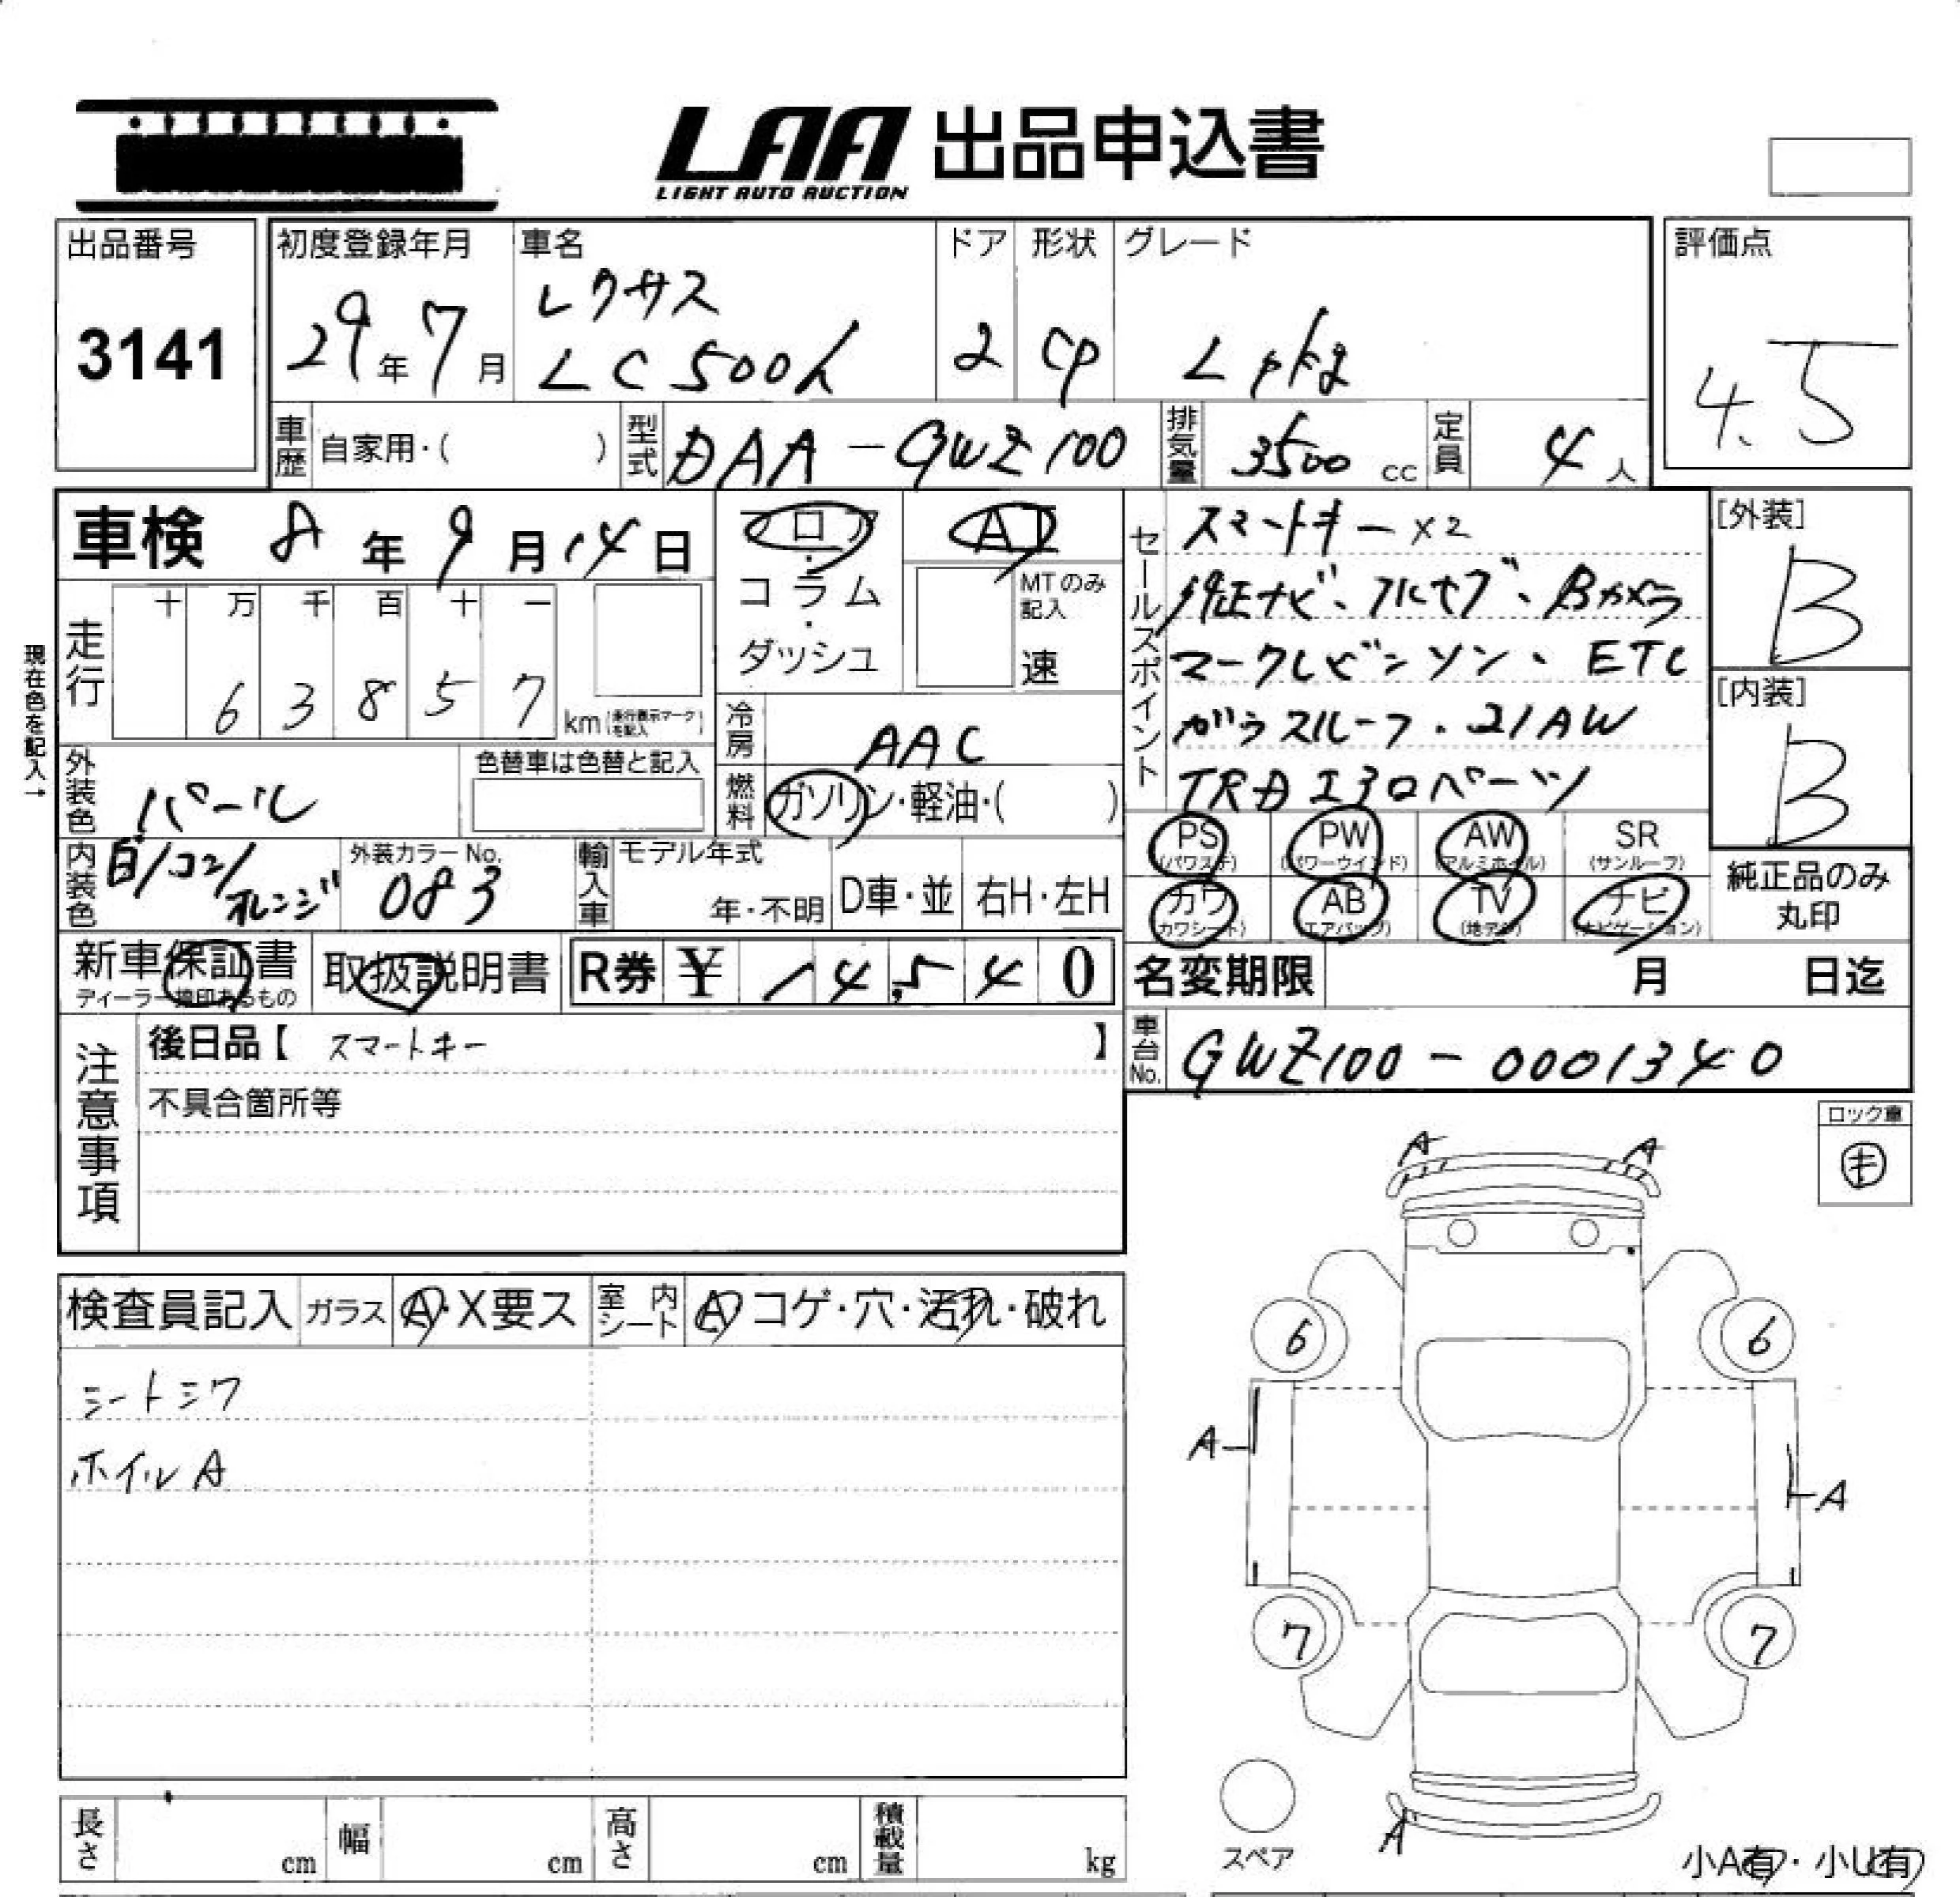 LAA 出品申込書
LIGHT AUTO AUCTION
出品番号
3141
初度登録年月
29年7月
車名
レクサス
LC500h
ドア
2
形状
CP
グレード
Lpkg
評価点
4.5
車歴 自家用・( )
型式 DAA-GWZ100
排気量 3500 cc
定員 4人
車検 8年9月14日
フロア・コラム・ダッシュ
AT
MTのみ記入
速
走行
十 万 千 百 十 一
6 3 8 5 7
km(走行表示マークを記入)
現在色を記入→
冷房 AAC
燃料 ガソリン・軽油・( )
外装色 パール
色替車は色替と記入
内装色 白/コン/オレンジ
外装カラーNo.
083
輸入車
モデル年式
年・不明
D車・並
右H・左H
セールスポイント
スマートキー×2
純正ナビ、フルセグ、Bカメラ
マークレビンソン、ETC
ガラスルーフ・21AW
TRDエアロパーツ
[外装]
B
[内装]
B
PS (パワステ)
PW (パワーウインド)
AW (アルミホイル)
SR (サンルーフ)
カワ (カワシート)
AB (エアバッグ)
TV (地デジ)
ナビ (ナビゲーション)
純正品のみ
丸印
新車保証書
ディーラー捺印あるもの
取扱説明書
R券 ¥ 14,540
名変期限 月 日迄
車台No. GWZ100-0001340
注意事項
後日品【 スマートキー 】
不具合箇所等
ロック車
キ
検査員記入
ガラス A・X要ス
室内シート A コゲ・穴・汚れ・破れ
シートシワ
ホイルA
A A
6 6
A A
7 7
A
スペア
小A有・小U有
長さ cm
幅 cm
高さ cm
積載量 kg